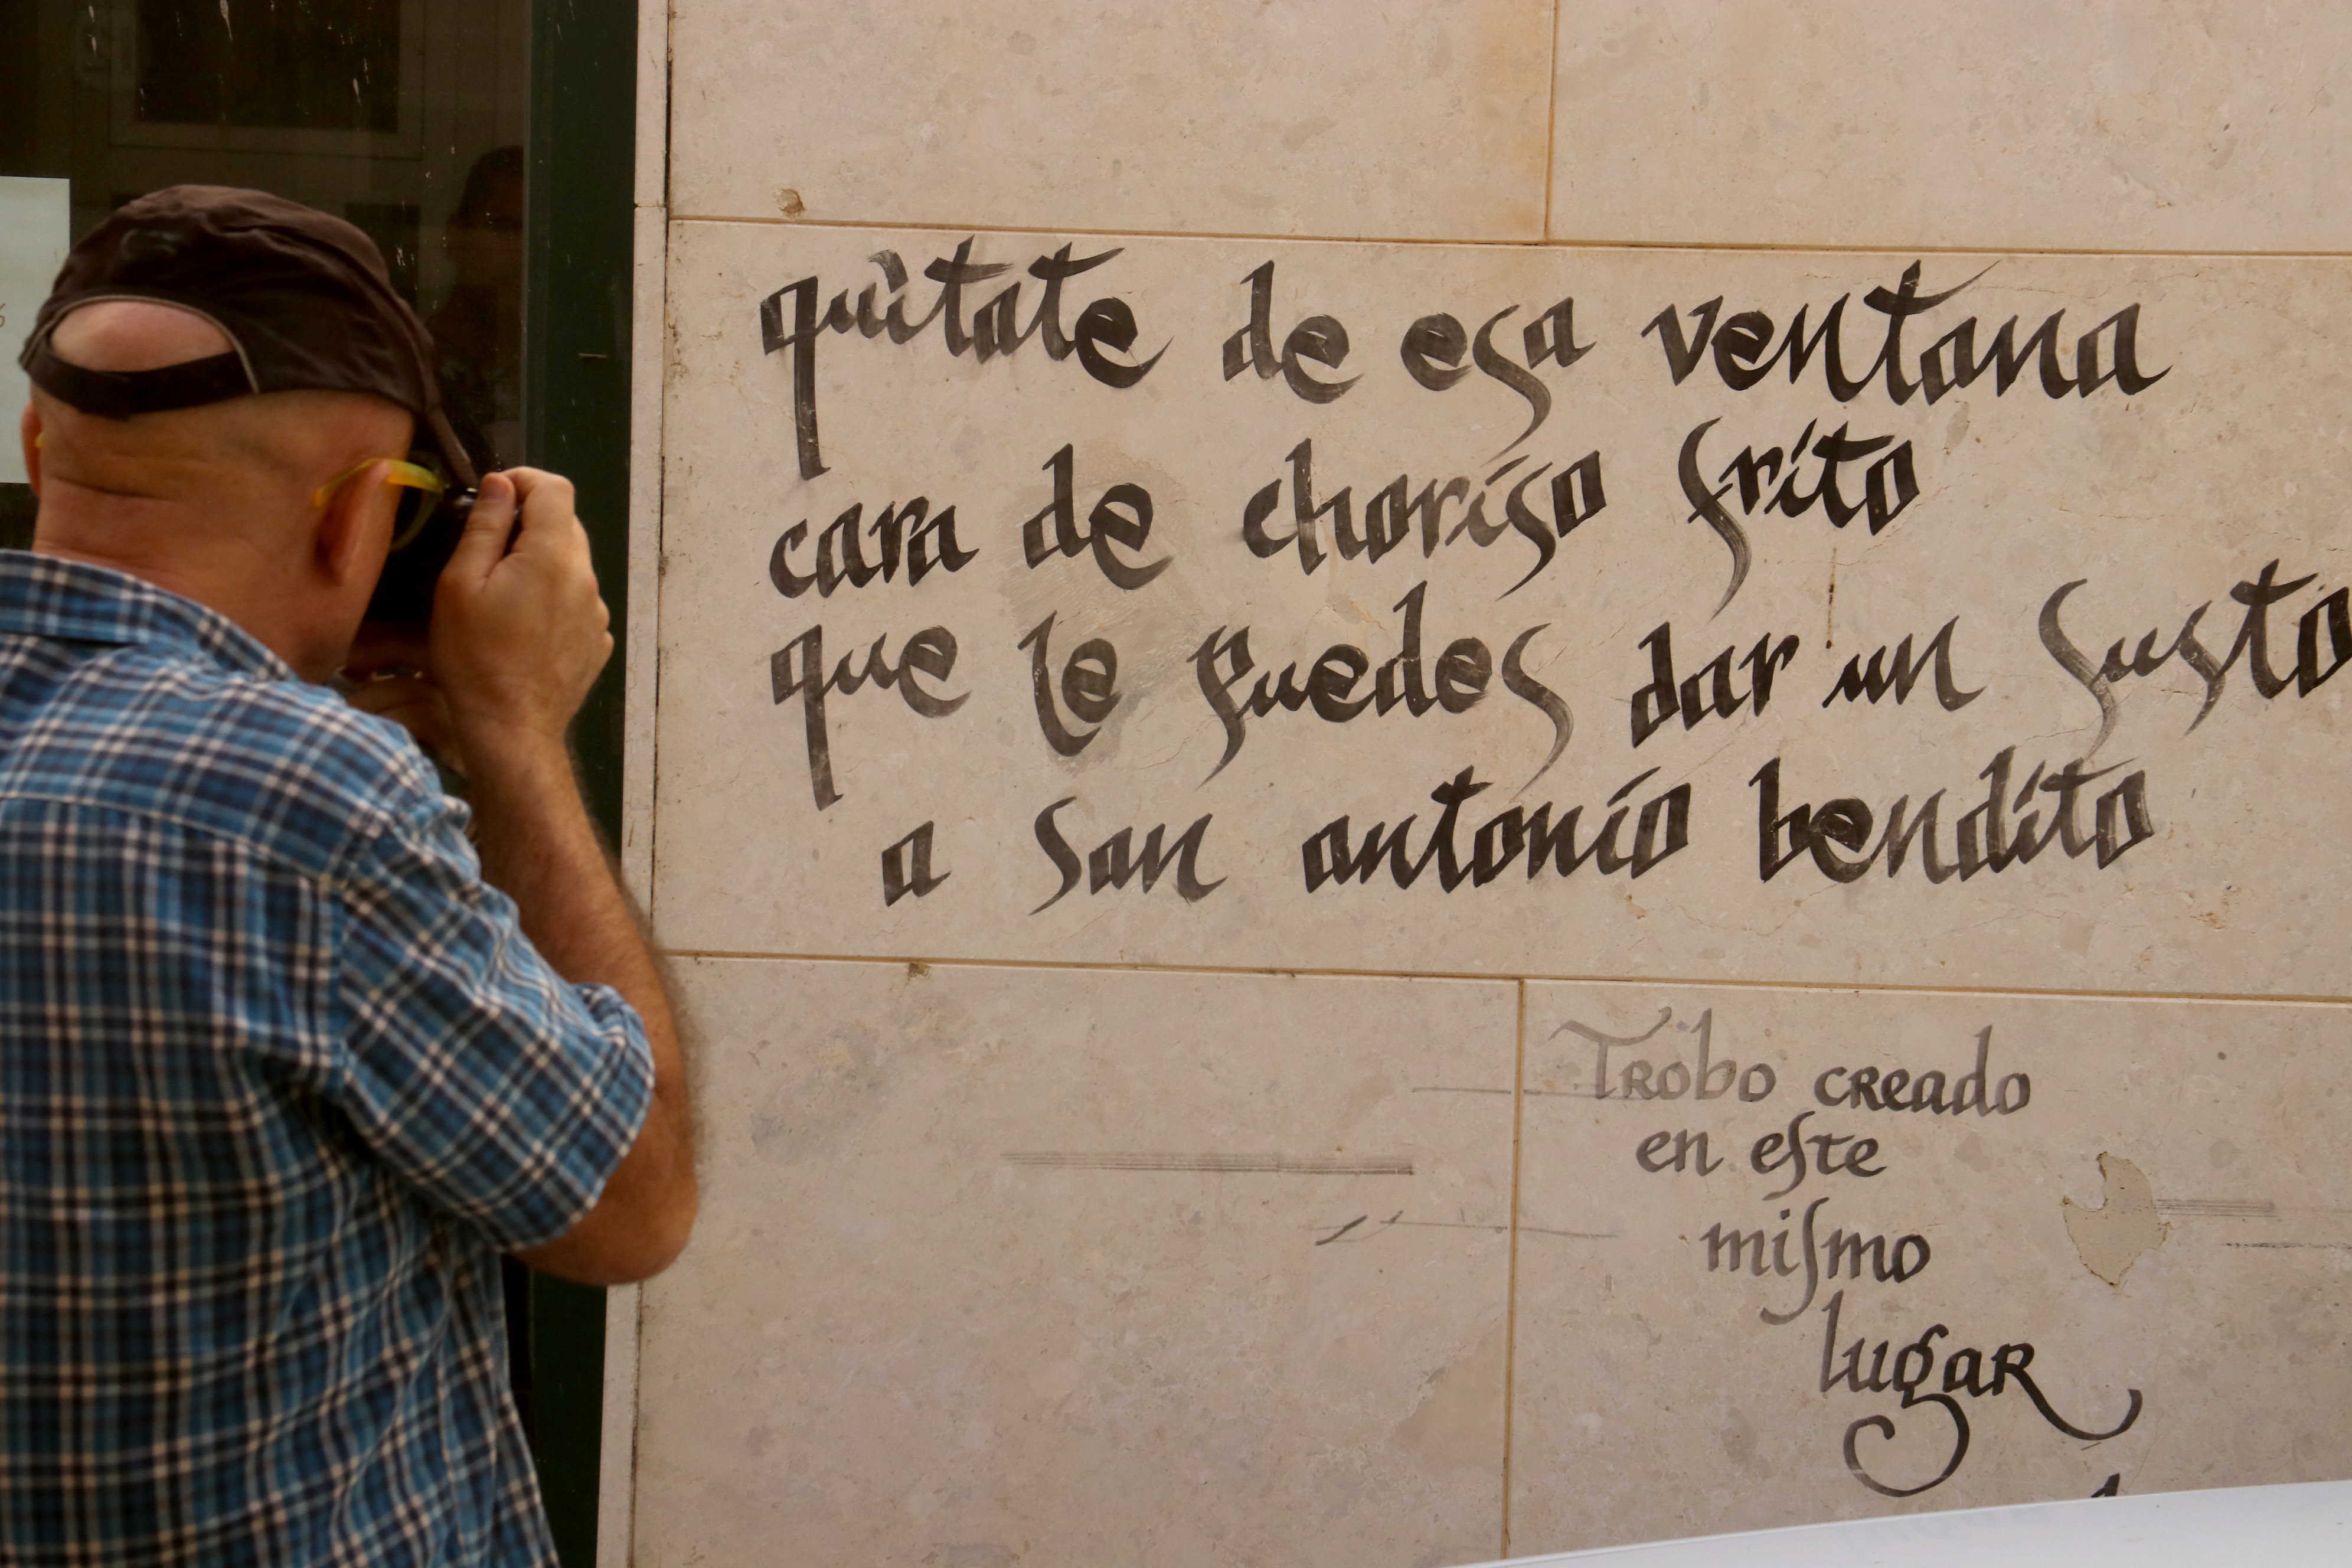 quitate de esa ventana
cara de choriso frito
que le puedes dar un susto
a San antonio bendito
Trobo creado
en este
mismo
lugar